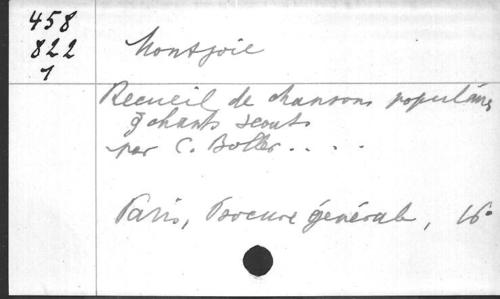 458
822
1
Montjoie
Recueil de chansons populaires
& chants scouts
par C. Boller. . . .
Paris, Procure générale, 16°